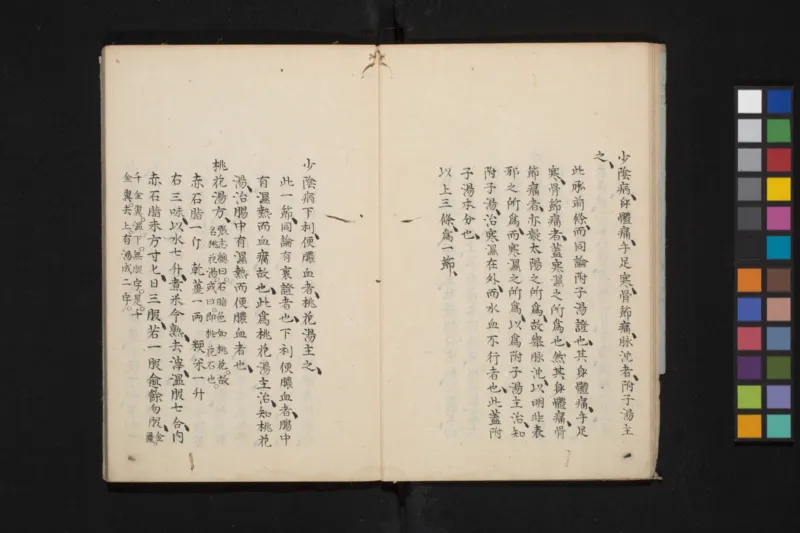 少陰病、身體痛、手足寒、骨節痛、脉沈者、附子湯主
之、
此承前條、而同論附子湯證也、其身體痛、手足
寒、骨節痛者、蓋寒濕之所爲也、然其身體痛、骨
節痛者、亦疑太陽之所爲、故擧脉沈、以明非表
邪之所爲、而寒濕之所爲、以爲附子湯主治、知
附子湯治寒濕在外、而水血不行者也、此蓋附
子湯本分也、
以上三條、爲一節、
少陰病下利便膿血者、桃花湯主之、
此一節、同論有裏證者也、下利便膿血者、腸中
有濕熱而血瘀故也、此爲桃花湯主治、知桃花
湯、治腸中有濕熱而便膿血者也、
桃花湯方、張志聰曰、石脂色如桃花、故
名桃花湯、或曰、即桃花石也。
赤石脂一斤 乾薑一兩 粳米一升
右三味、以水七升、煮米令熟、去滓、温服七合、内
赤石脂末方寸匕、日三服、若一服愈、餘勿服、金匱
千金翼、温下、無服字、是、千
金翼、去上、有湯成二字、